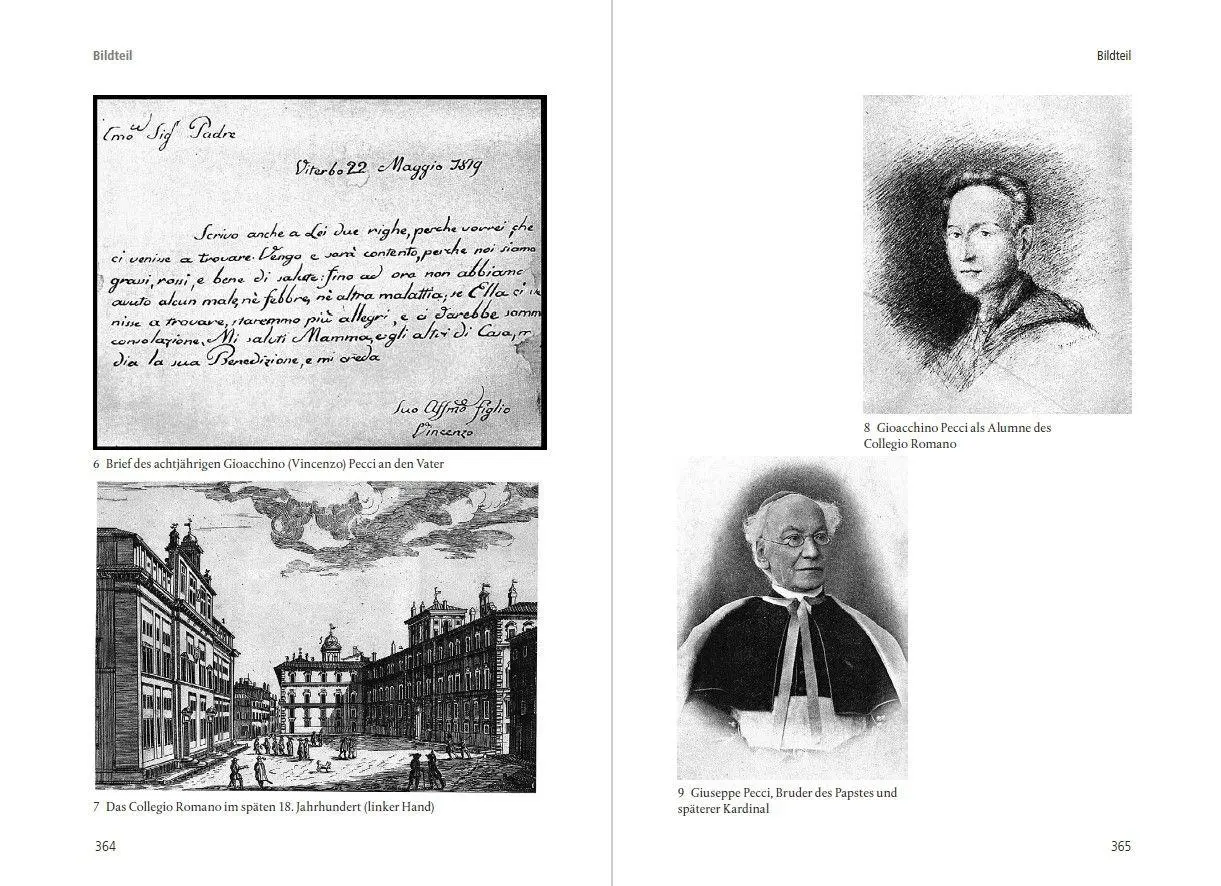 Bildteil
Emo Sigr Padre
Viterbo 22 Maggio 1819
Scrivo anche a Lei due righe, perche vorrei, che
ci venisse a trovare. Venga e sarà contento, perche noi siamo
grassi, rossi, e bene di salute: fino ad ora non abbiamo
avuto alcun male, nè febbre, nè altra malattia; se Ella ci
nisse a trovare, staremmo più allegri, e ci darebbe somm
consolazione. Mi saluti Mamma, e gli altri di Casa, m
dia la sua Benedizione, e mi creda
Suo Affmo figlio
Vincenzo
6 Brief des achtjährigen Gioacchino (Vincenzo) Pecci an den Vater
7 Das Collegio Romano im späten 18. Jahrhundert (linker Hand)
364
Bildteil
8 Gioacchino Pecci als Alumne des
Collegio Romano
9 Giuseppe Pecci, Bruder des Papstes und
späterer Kardinal
365